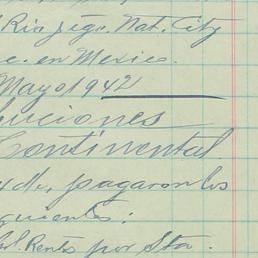 Rio y sgo. Nat. City
e. en Mexico.
Mayo 1942
uciones
Continental
pagaron los
guientes:
Renta por Sta.